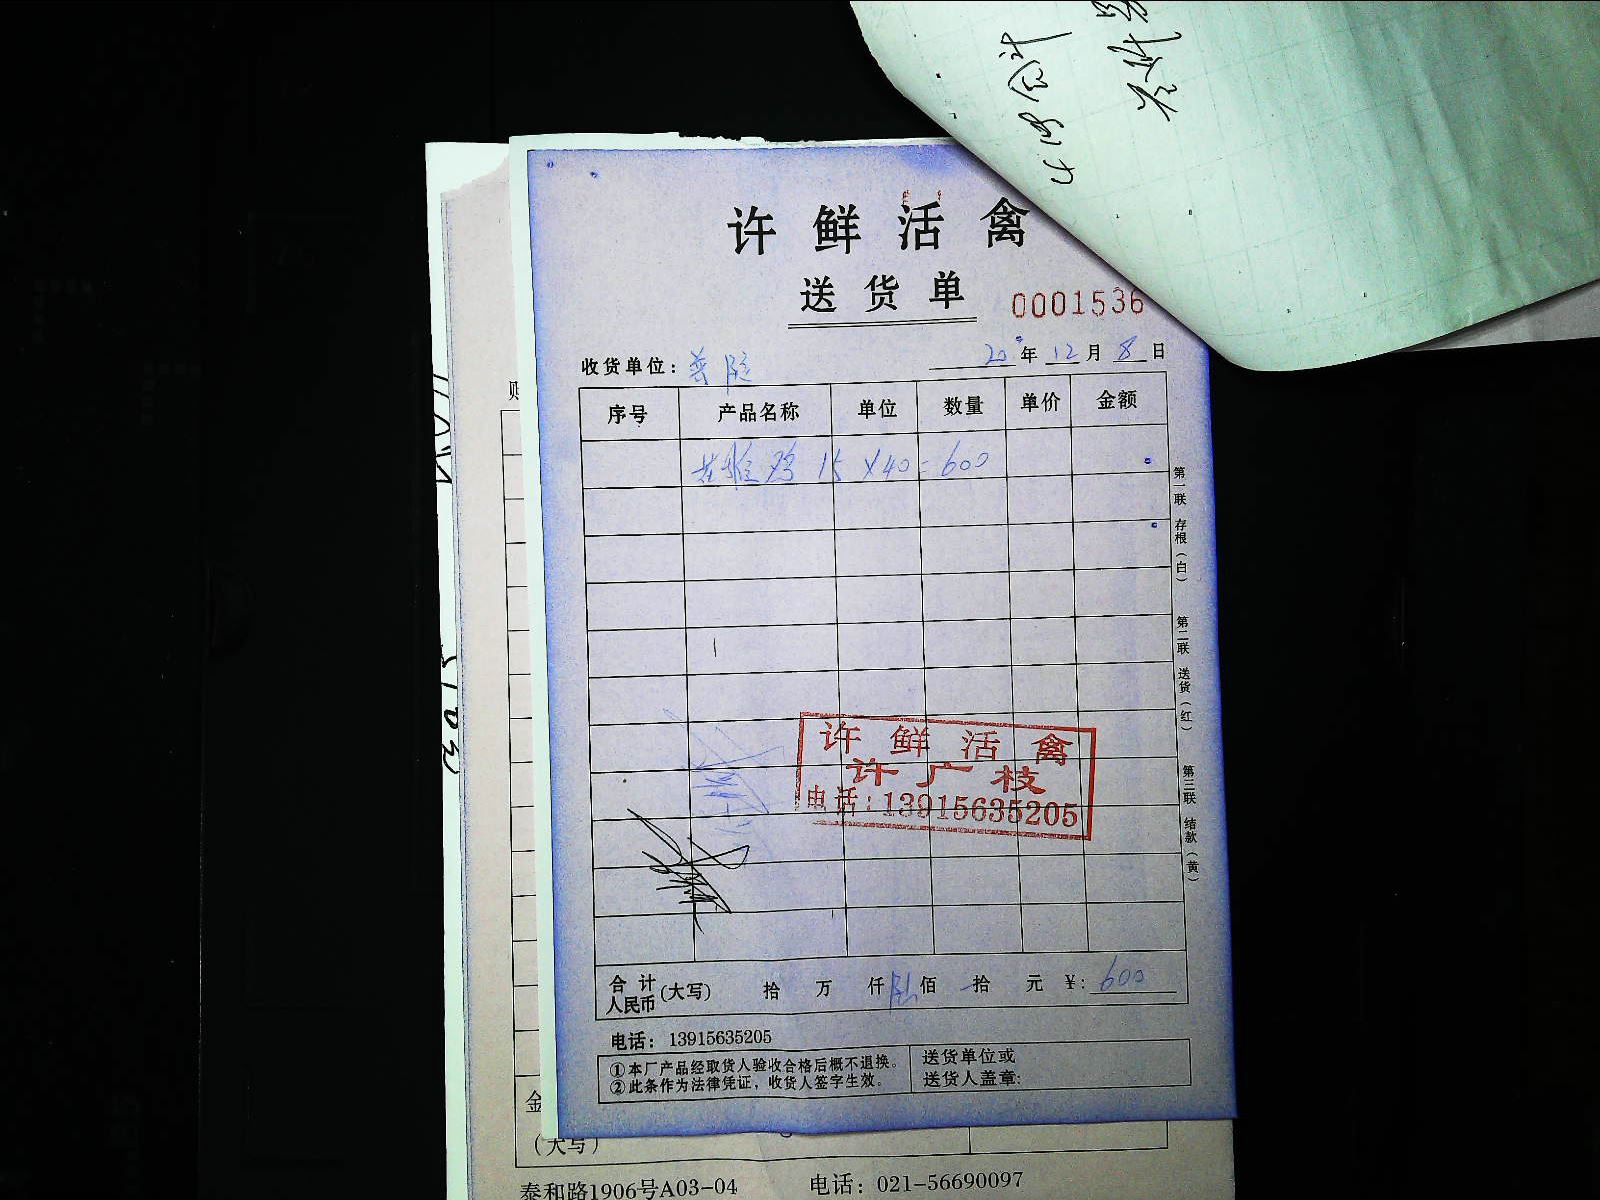 许鲜活禽
送货单
0001536
收货单位：
20 年 12 月 8 日
序号 产品名称 单位 数量 单价 金额
鸡 15 X40=600
第一联 存根（白） 第二联 送货（红） 第三联 结款（黄）
许鲜活禽
许广枝
电话：13915635205
合计人民币（大写） 拾 万 仟 陆佰 拾 元 ¥：600
电话：13915635205
①本厂产品经取货人验收合格后概不退换。
②此条作为法律凭证，收货人签字生效。
送货单位或
送货人盖章：
金
（大写）
泰和路1906号A03-04 电话：021-56690097